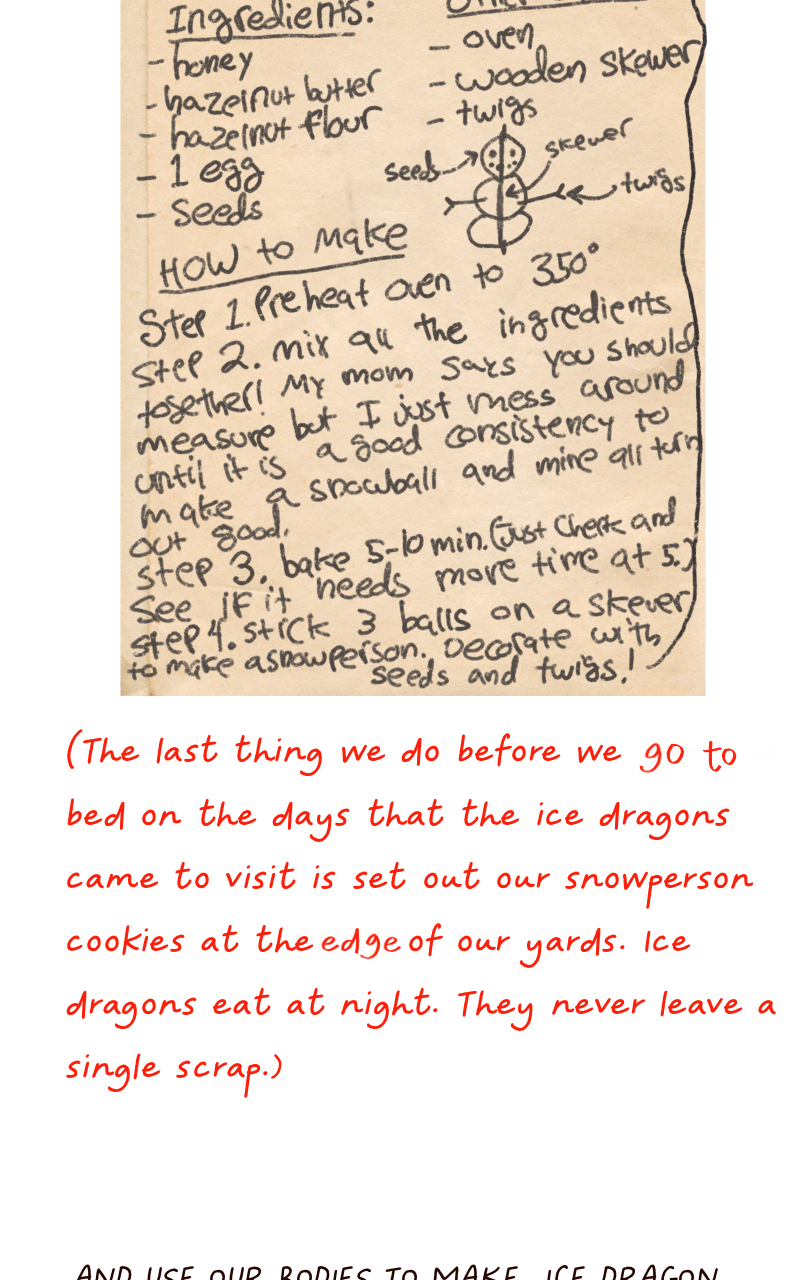 Ingredients:
- honey
- hazelnut butter
- hazelnut flour
- 1 egg
- seeds
- oven
- wooden skewer
- twigs
seeds
skewer
twigs
HOW to Make
Step 1. Preheat oven to 350°
Step 2. mix all the ingredients
together! My mom says you should
measure but I just mess around
until it is a good consistency to
make a snowball and mine all turn
out good.
step 3. bake 5-10 min. (Just Check and
see if it needs more time at 5.)
step 4. stick 3 balls on a skewer
to make a snowperson. Decorate with
seeds and twigs!
(The last thing we do before we go to
bed on the days that the ice dragons
came to visit is set out our snowperson
cookies at the edge of our yards. Ice
dragons eat at night. They never leave a
single scrap.)
AND USE OUR BODIES TO MAKE ICE DRAGON